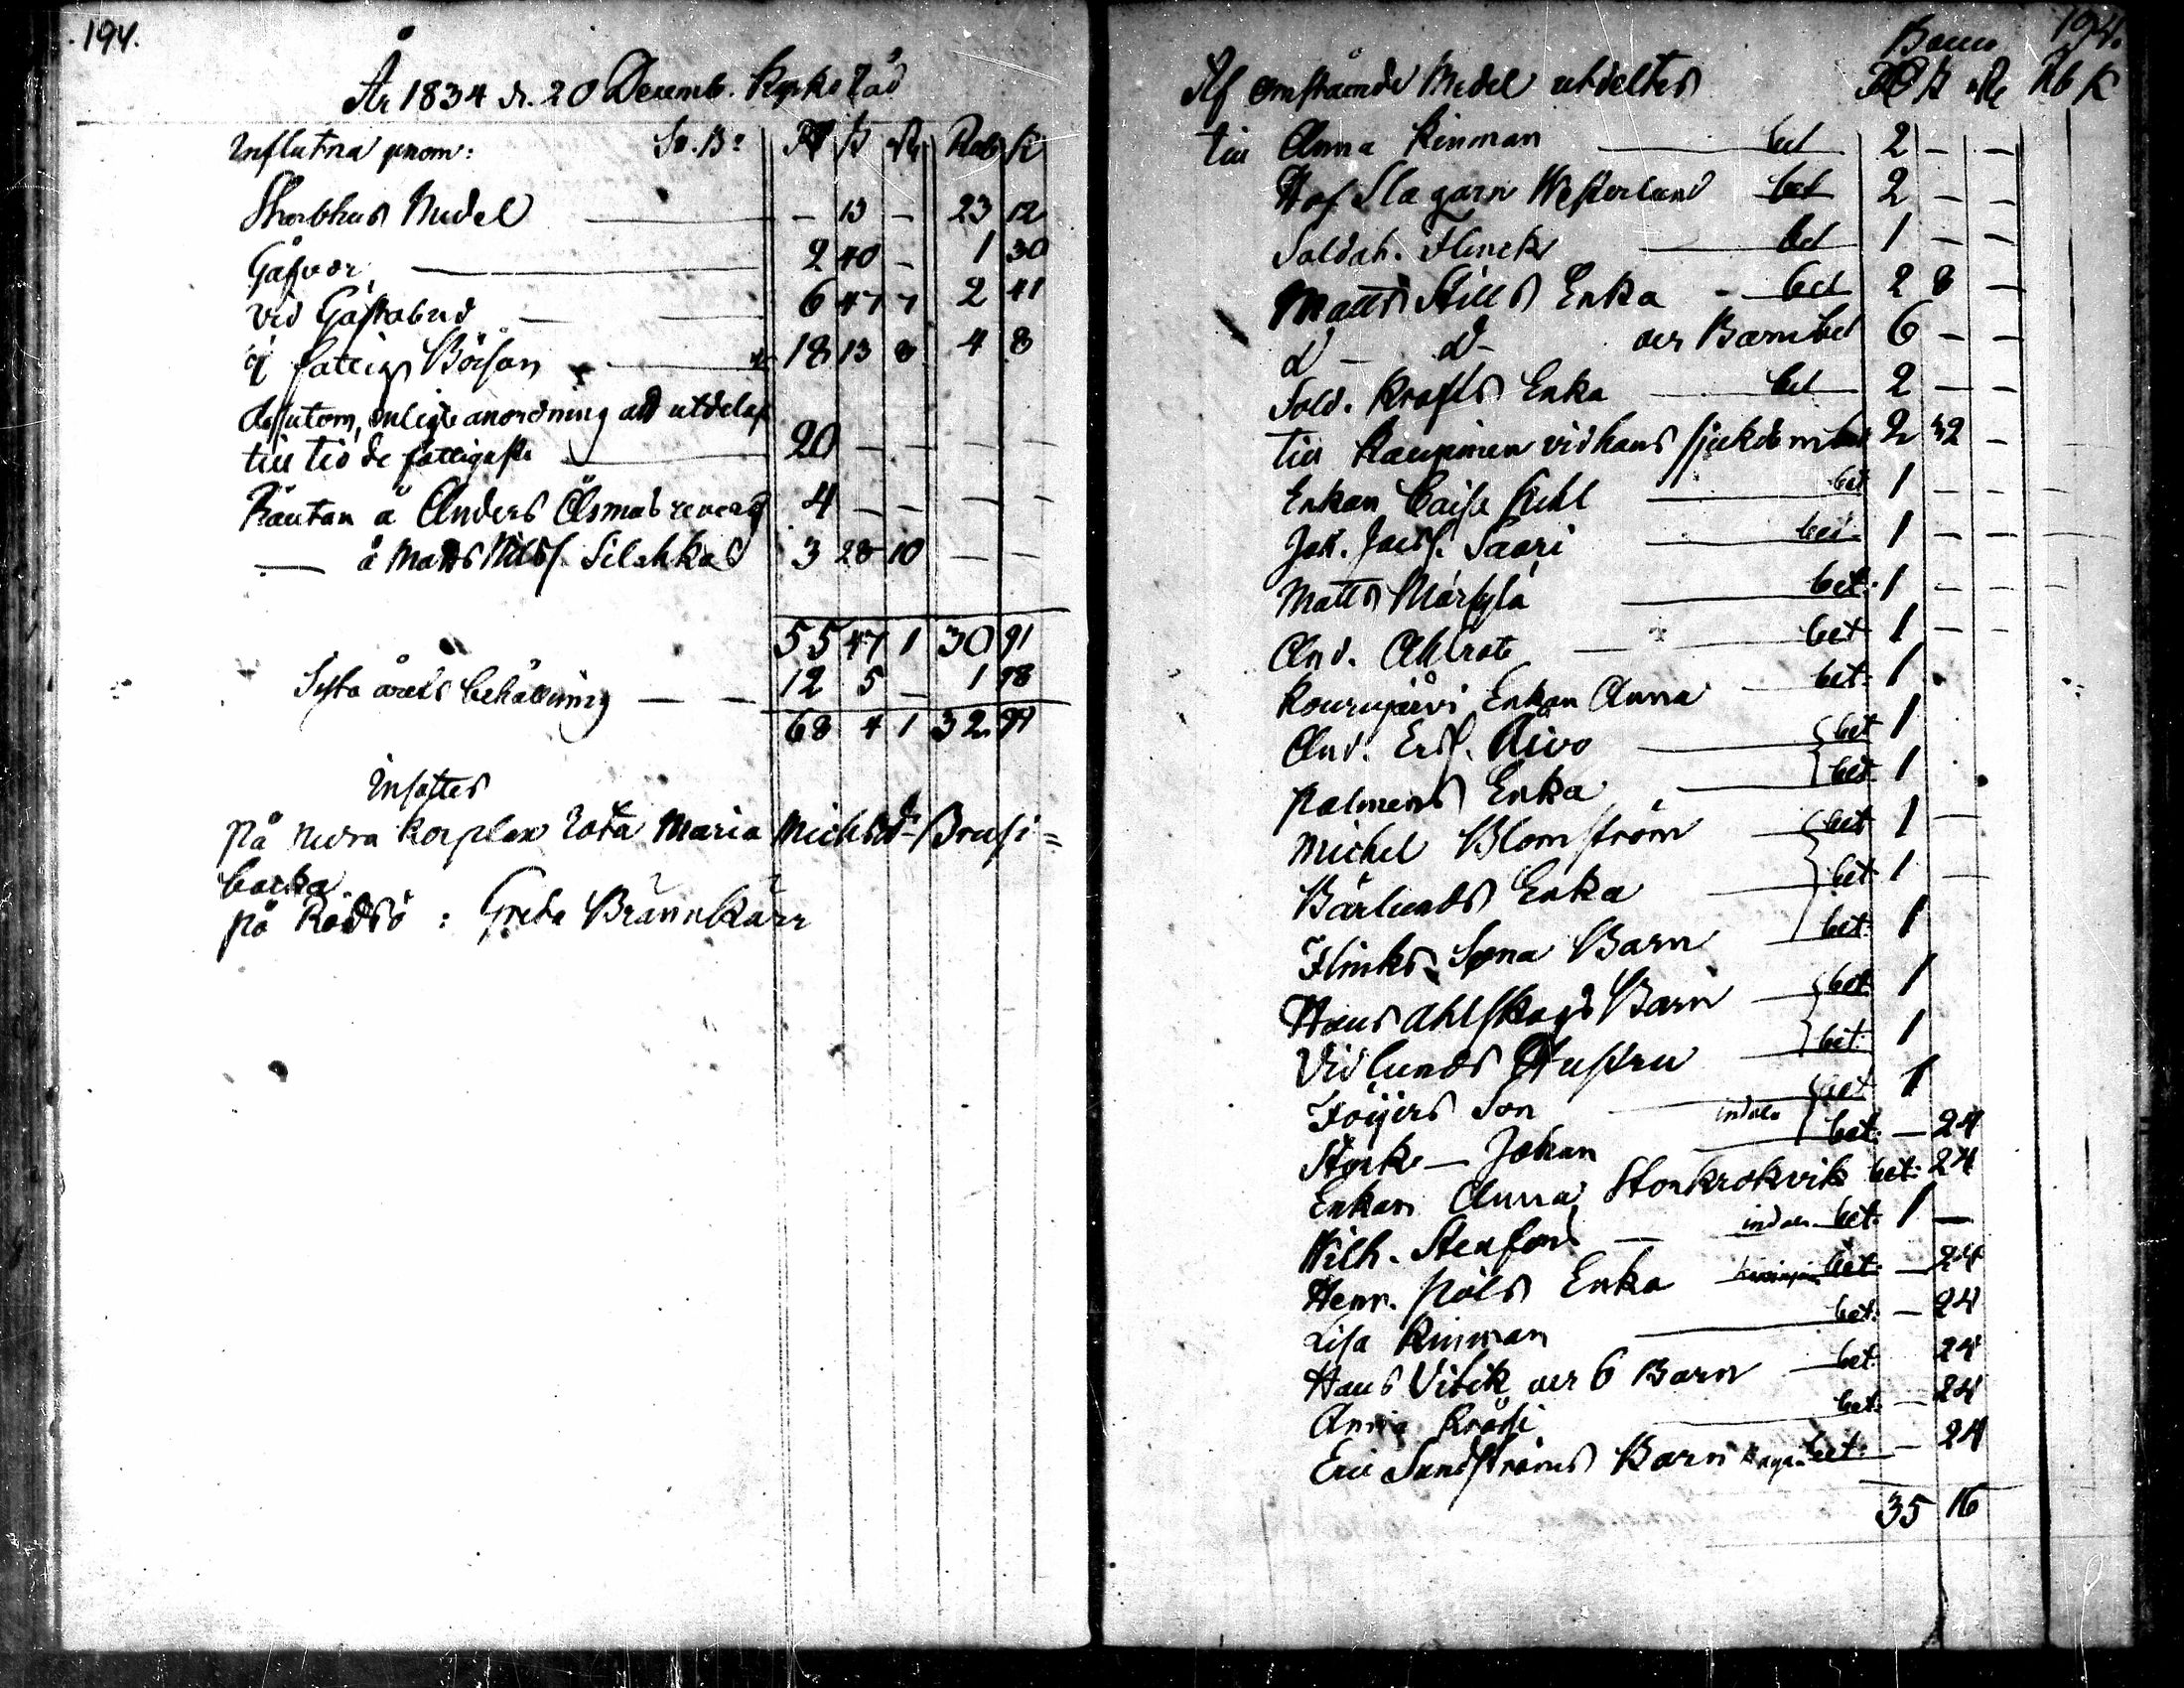 194.
År 1834 d. 20 Decemb. Kyrkoråd
Influtna genom: Sv. B:o Rd ß rst Rub K
Skrabbhus Medel — — 13 — 23 12
Gåfvor — 2 40 — 1 30
vid Gästabud — 6 47 7 2 41
i fattigs Bössan — 18 13 8 4 8
dessutom, enligt anordning att utdelas
till tio de fattigaste — 20 — — — —
Räntan å Anders Åsmas revers 4 — — — —
— å Matts Nilss. Silahkas 3 28 10 — —
55 47 1 30 91
Sista årets behållning — — 12 5 — 1 78
68 4 1 32.
Insattes
på nedra Korplax rota Maria Michelsd:r Brusi=
backa
på Rödsö : Greta Brännkärr
194.
Banco
Af omstående Medel utdeltes Rd ß rst Rb K
till Anna Rinman — bet 2 — —
Hofslagarn Westerlund bet 2 — —
Soldat. Flinck — bet 1 — —
Matts Stills Enka — bet 2 8 —
d — d — Barn bet 6 — —
Sold. Krafts Enka — bet 2 — —
till Kaupinen vid hans sjukdom bet 2 32 —
Enkan Caisa — bet 1 — —
Joh. Jacss. Saari — bet. 1 — —
Matts — bet. 1 — —
And. Ahlrot — bet 1 — —
Kourujärvi Enkan Anna bet. 1
And. Erss. — bet 1
Palmens Enka — bet 1
Michel Blomström — bet 1 —
Bärlunds Enka — bet 1 —
Flinks Barn — bet. 1
Hans Ahlskogs Barn — bet. 1
Vidlunds Hustru — bet. 1
Höijers Son — bet 1
Stork — Johan — bet. — 24
Enkan Anna Storkrokvik bet. 24
Wilh. Stenfors — bet. 1 —
Henr. Påls Enka bet. — 24
Lisa Rinman — bet. — 24
Hans Vitick 6 Barn — bet. 24
Anna — bet. — 24
Eric Sandströms Barn bet. — 24
35 16